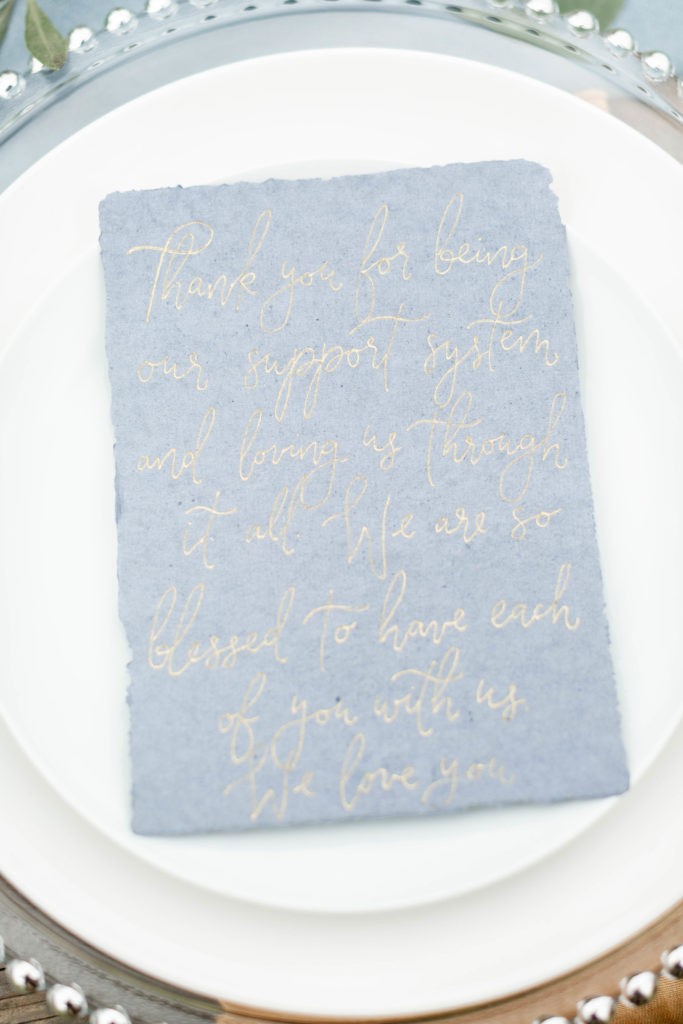 Thank you for being
our support system
and loving us through
it all. We are so
blessed to have each
of you with us
We love you